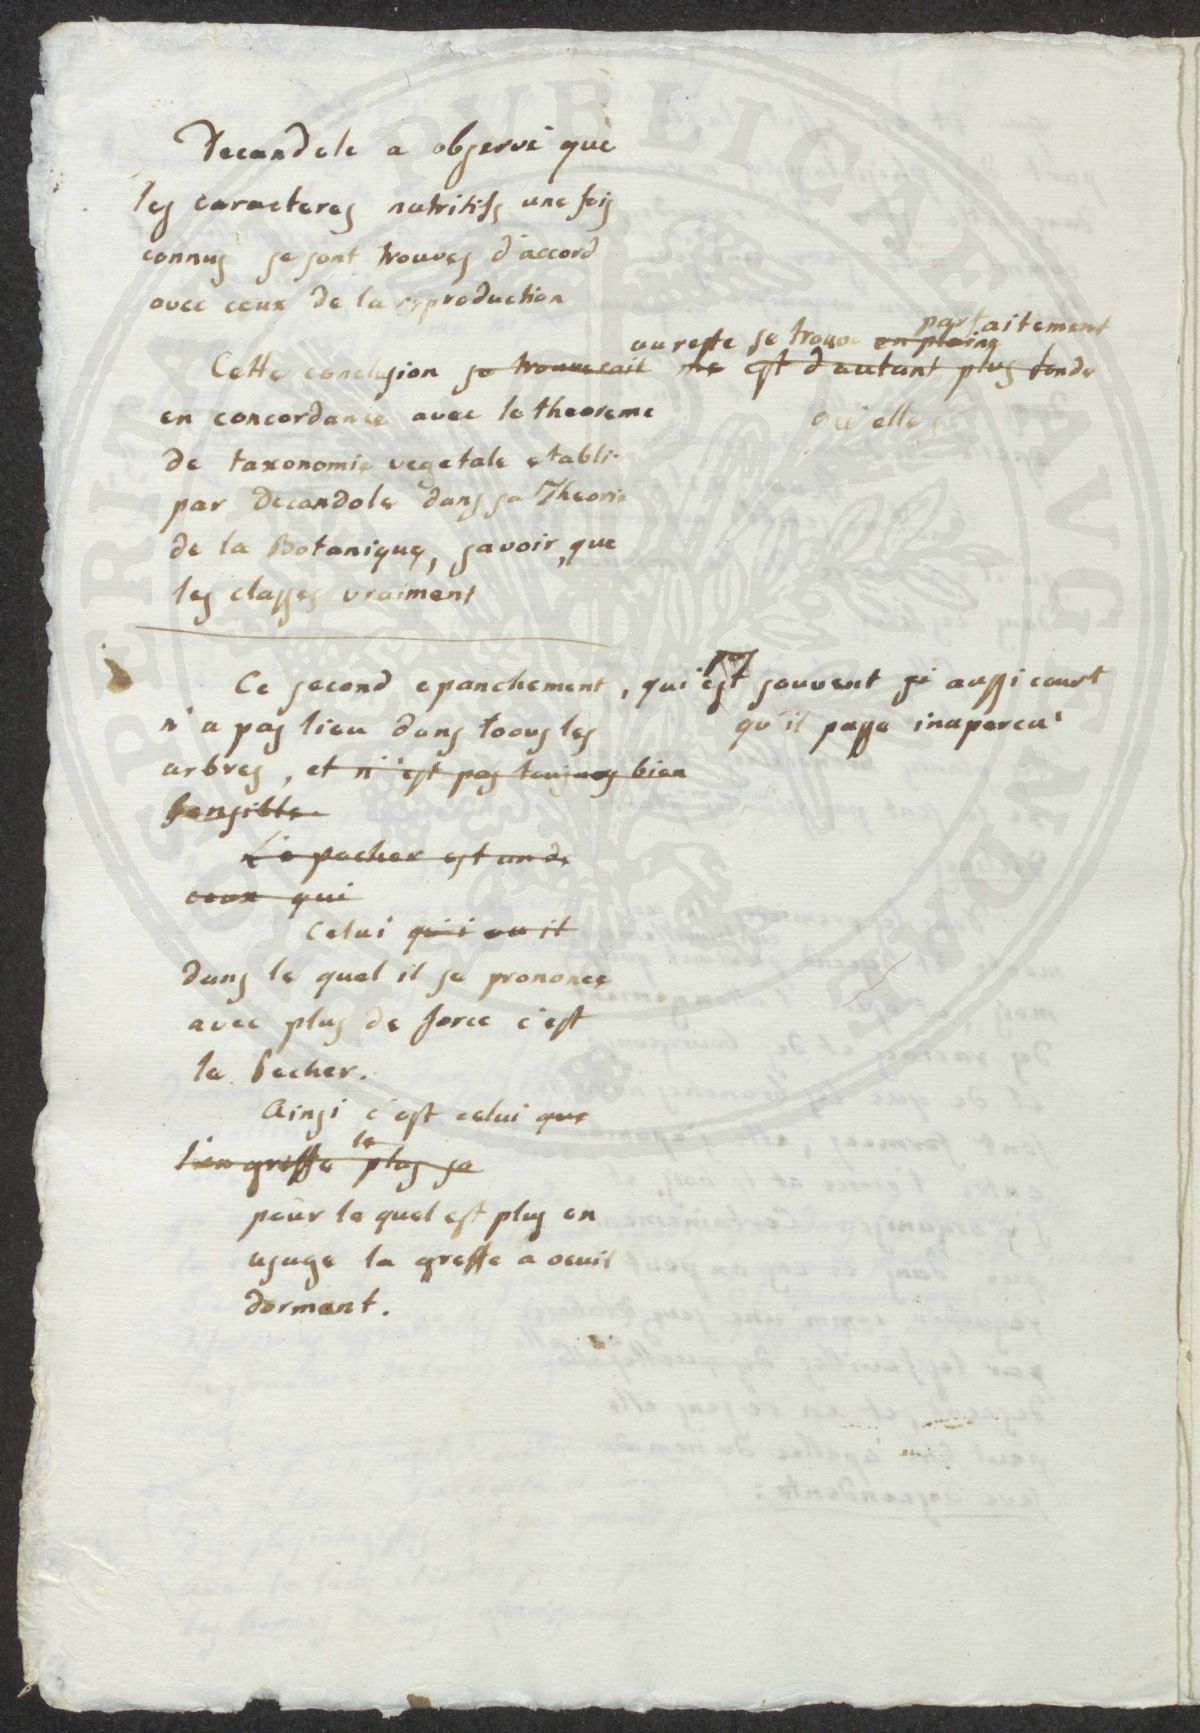 Decandole a observé que
les caracteres nutritifs une fois
connus se sont trouves d'accord
avec ceux de la reproduction
parfaitement
au reste se trouve en pleine
Cette conclusion se trouverait me est d'autant plus fonde
en concordance avec le theoreme
qu'elle
de taxonomie vegetale etabli
par Decandole dans sa Theorie
de la Botanique, savoir, que
les classes vraiment
Ce second epanchement, qui est souvent si aussi court
n'a pas lieu dans toous les
qu'il passe inapercu
arbres, et n'est pas toujous bien
sensible.
Le pecher est un de
ceux qui
Celui qui ou il
dans le quel il se prononce
avec plus de force c'est
le Pecher.
Ainsi c'est celui que
le
l'on greffe plus se
pour le quel est plus en
usage la greffe a oeuil
dormant.